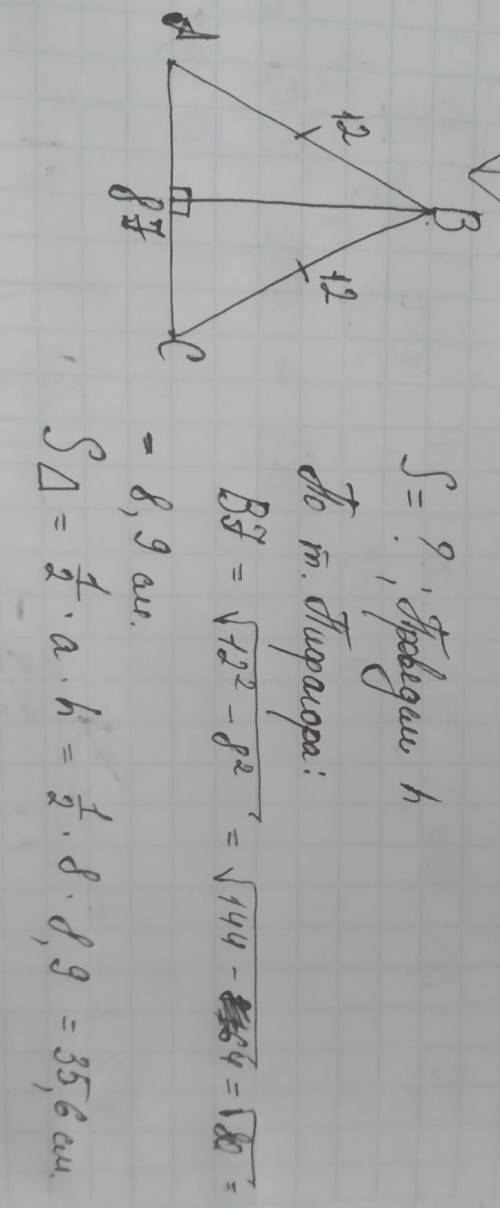 B
12
12
A
8 F
C
S = ? ; Проведём h
По т. Пифагора:
BF = √12² - 8² = √144 - 64 = √80 =
= 8,9 см.
S△ = 1/2 · a · h = 1/2 · 8 · 8,9 = 35,6 см.